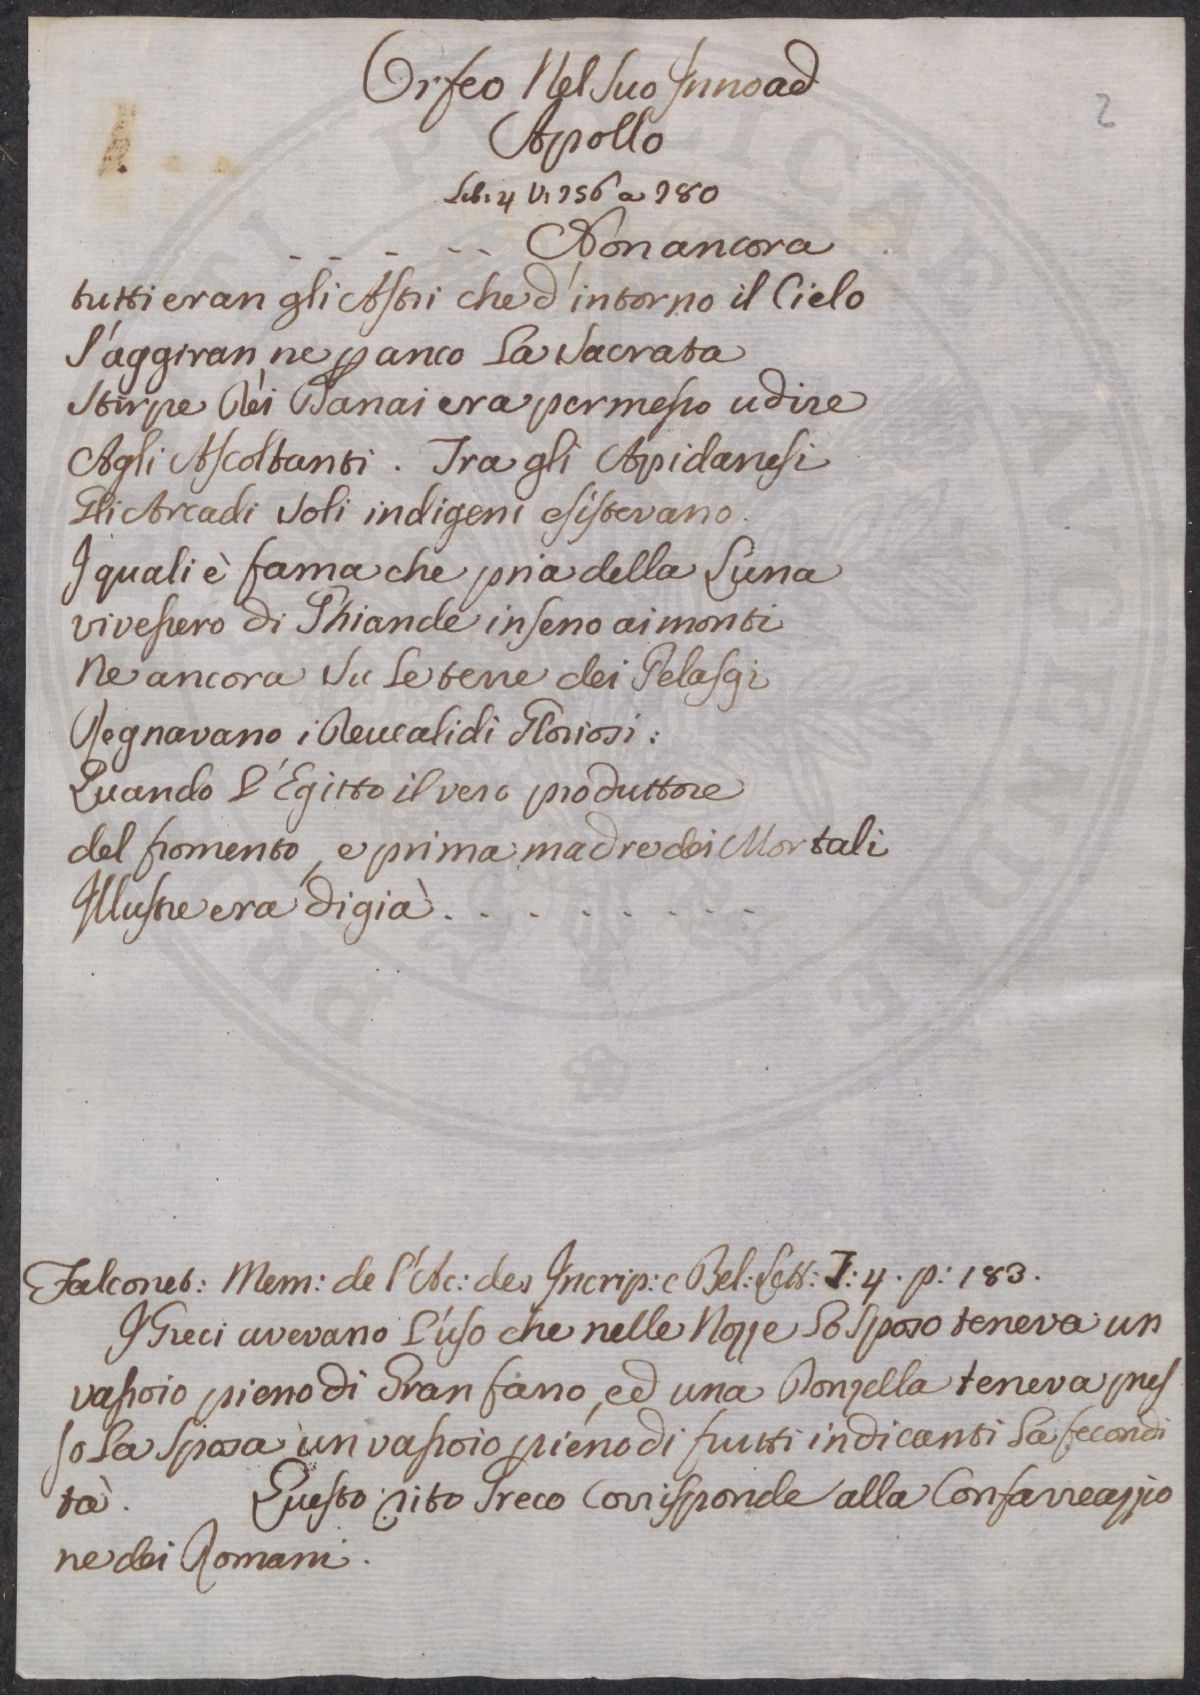 2
Orfeo Nel Suo Inno ad
Apollo
Lib: 4 V: 256 a 280
. . . . . . Non ancora
tutti eran gli Astri che d'intorno il Cielo
S'aggiran, ne panco La Sacrata
Stirpe Dei Danai era permesso udire
Agli Ascoltanti. Tra gli Apidanesi
Gli Arcadi Soli indigeni esistevano.
I quali è fama che pria della Luna
vivessero di Ghiande in seno ai monti
Ne ancora Su Le terre dei Pelasgi
Regnavano i Deucalidi Gloriosi:
Quando L'Egitto il vero produttore
del fromento, e prima madre dei Mortali
Illustre era di già . . . . . . . . .
Falconet: Mem: de l'Ac: des Incrip: e Bel: Lett: T: 4. p: 183.
I Greci avevano L'uso che nelle Nozze Lo Sposo teneva un
vassoio pieno di Gran fano, ed una Donzella teneva pres
so La Sposa un vassoio pieno di frutti indicanti La fecondi
tà. Questo rito Greco Corrisponde alla Confarreazzio
ne dei Romani.